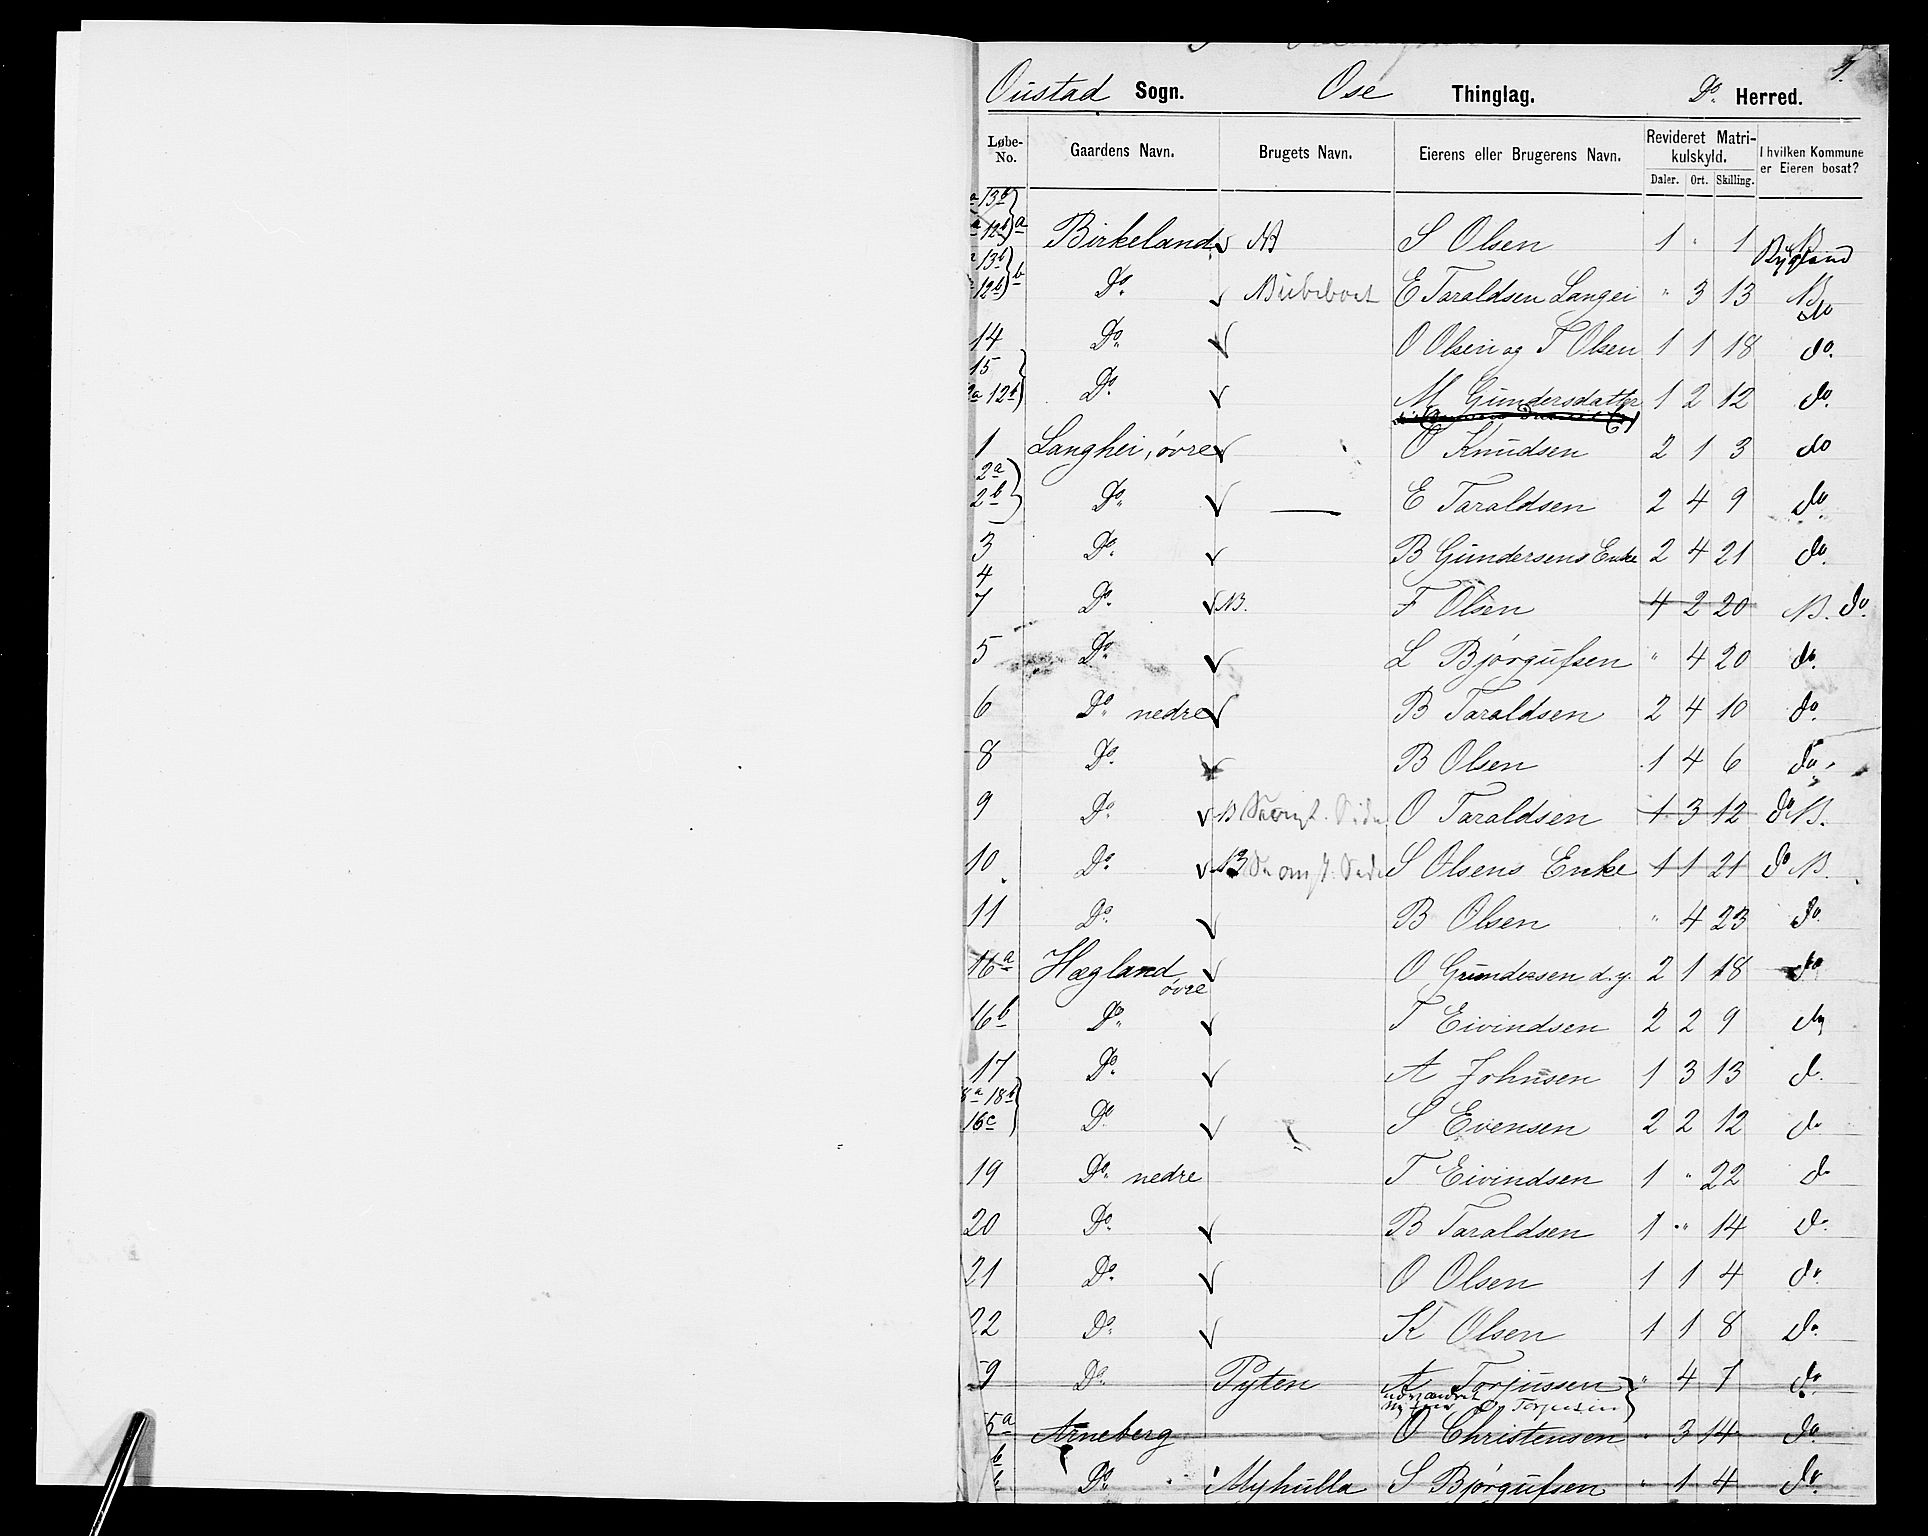 1.
Oustad Sogn. Ose Thinglag. Do. Herred.
Løbe-No. Gaardens Navn. Brugets Navn. Eierens eller Brugerens Navn. Revideret Matrikulskyld. Daler. Ort. Skilling. I hvilken Kommune er Eieren bosat?
13b
12b a Birkeland NB S Olsen 1 " 1 NB Bygland
13b
12b b Do. E Taraldsen Langei " 3 13 NB do
14 Do. O Olsen og T Olsen 1 1 18 do.
15
12b Do. M Gundersdatter 1 2 12 do.
1 Langhei, øvre O Knudsen 2 1 3 do
2a
2b Do. — E Taraldsen 2 4 9 do.
3 Do. B Gundersens Enke 2 4 21 do.
4
7 Do. NB. F Olsen 4 2 20 NB. do.
5 Do. L Bjørgufsen " 4 20 do.
6 Do. nedre B Taraldsen 2 4 10 do.
8 Do. B Olsen 1 4 6 do.
9 Do. O Taraldsen 1 3 12 do NB.
10 Do. NB S Olsens Enke 1 1 21 do NB.
11 Do. B Olsen " 4 23 do.
16a Hægland øvre O Gundersen d.y. 2 1 18 do
16b Do. T Eivindsen 2 2 9 do
17 Do. A Johnsen 1 3 13 do.
8a 18b
16c Do. S Evensen 2 2 12 do
19 Do. nedre T Eivindsen 1 " 22 do
20 Do. B Taraldsen 1 " 14 do.
21 Do. O Olsen 1 1 4 do.
22 Do. K Olsen 1 1 8 do.
59 Do. Pyten A Torjussen " 4 7 do.
O Torjusen
5a Arneberg O Christensen " 3 14 do.
b Do. Myhulla S Bjørgufsen " 1 4 do.